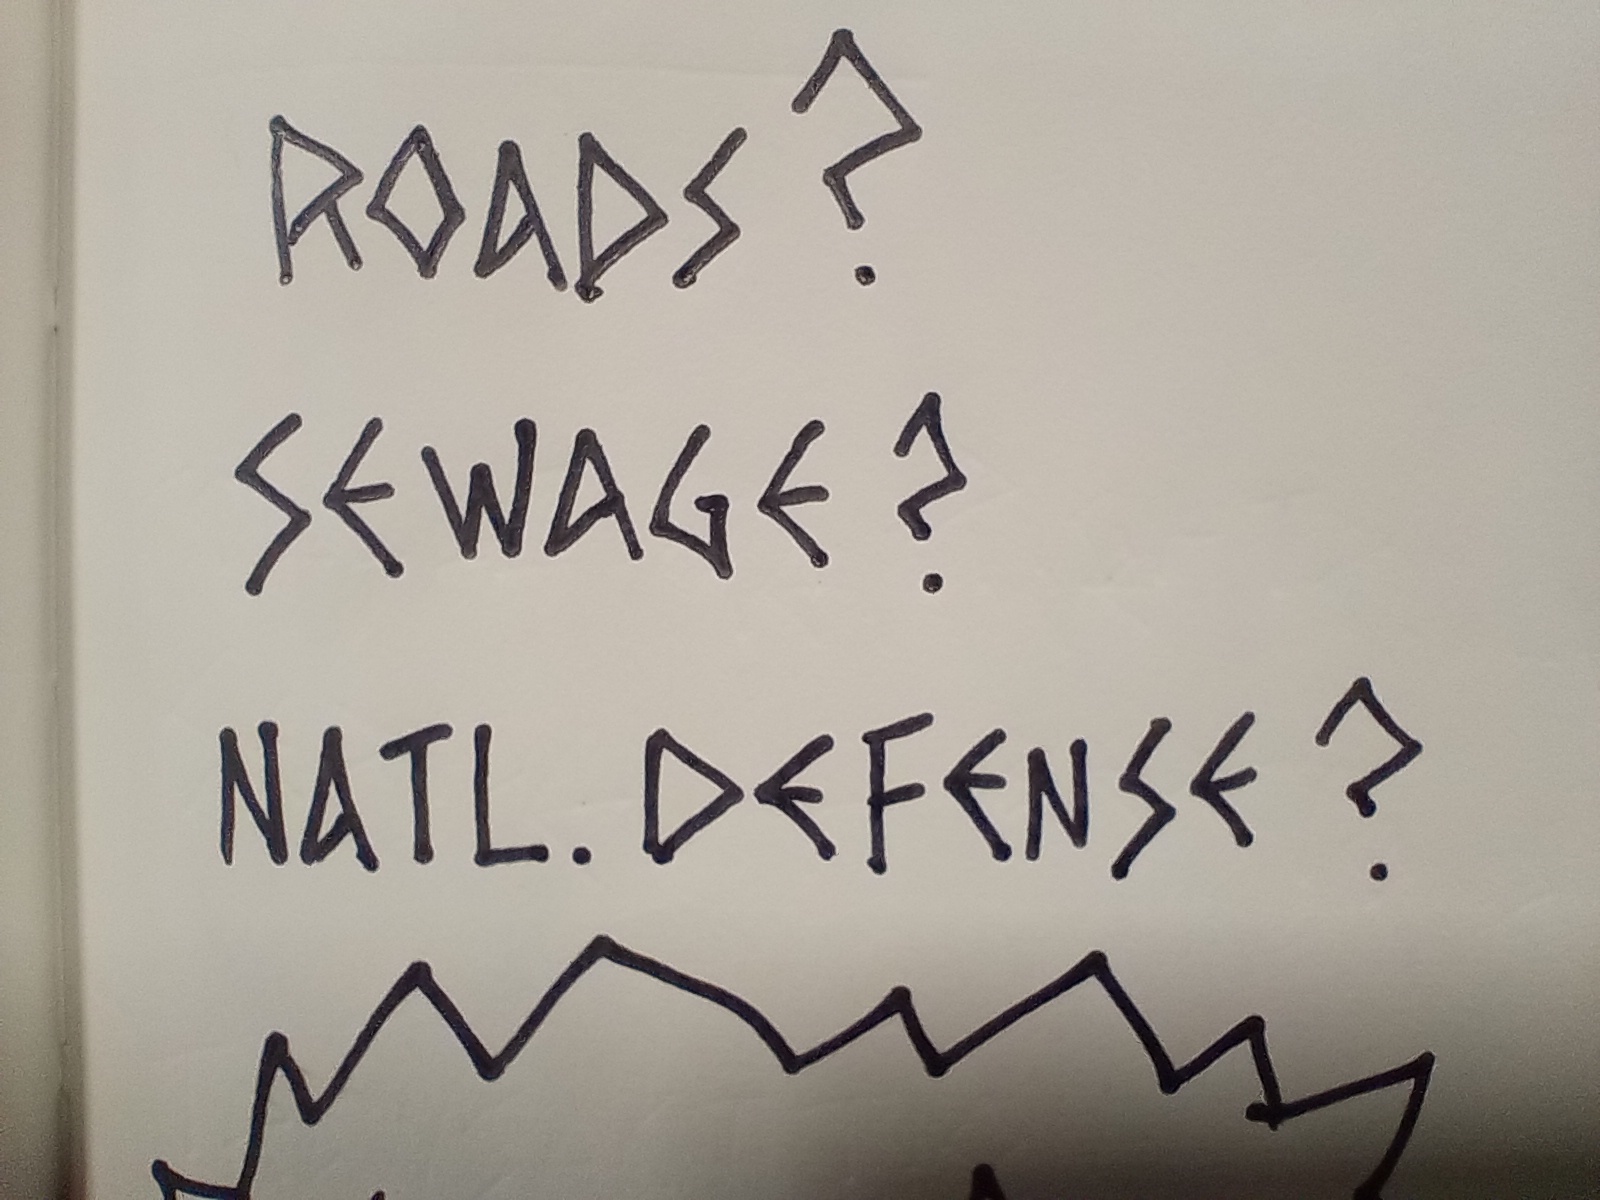 ROADS?
SEWAGE?
NATL. DEFENSE?